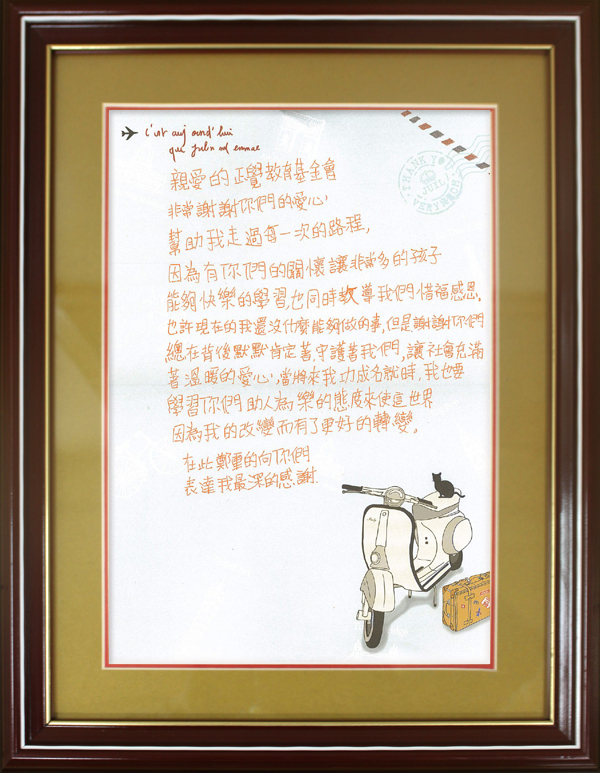 c'est aujourd'hui
que
THANK YOU
JUIL
親愛的正覺教育基金會
非常謝謝你們的愛心,
幫助我走過每一次的路程,
因為有你們的關懷讓非常多的孩子
能夠快樂的學習,也同時教導我們惜福感恩,
也許現在的我還沒什麼能夠做的事,但是謝謝你們
總在背後默默肯定著,守護著我們,讓社會充滿
著溫暖的愛心,當將來我功成名就時,我也要
學習你們助人為樂的態度來使這世界
因為我的改變而有了更好的轉變。
在此鄭重的向你們
表達我最深的感謝.